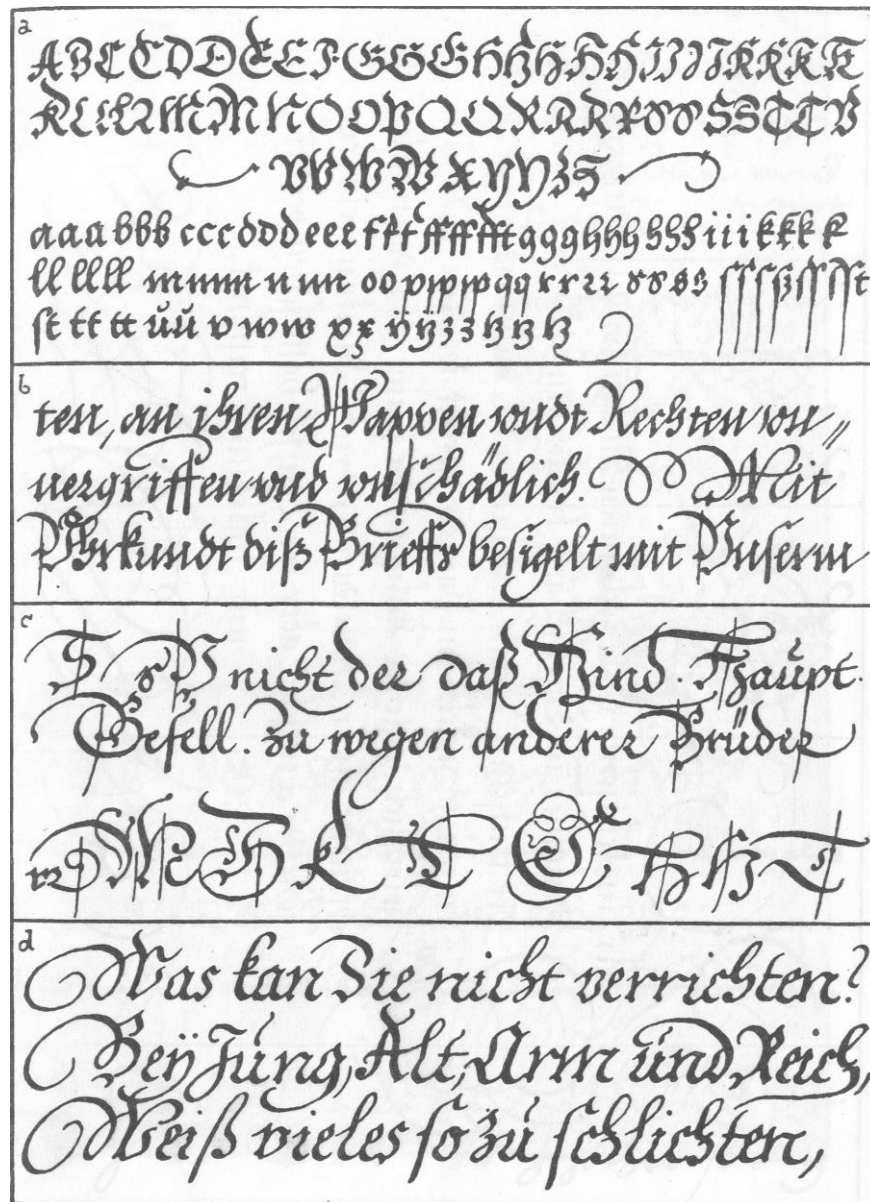 a
A B C C D D E E F G G G H H H H H I I I I K K K K
K L L L M M M N O O P Q Q R R R R S S S S T T V
V V W W X Y Y Z S
a a a b b b c c c d d d e e e f f f ff ff fft g g g h h h h h h i i i k k k k
ll ll ll m m n n n n o o p p p p q q r r r r s s s s ſ ſ ſ ß ſſ ſſ ſt
ſt tt tt ü ü v w w x x ÿ ÿ z z tz tz tz
b
ten, an ihren Wappen vndt Rechten vn⸗
uergriffen vnd vnſchädlich. Mit
Vhrkundt diß Brieffs beſigelt mit Vnſerm
c
nicht der daß Kind. Haupt.
Geſell. Zu wegen anderer Brüder
d
Was kan Sie nicht verrichten?
Beÿ Jung, Alt, Arm und Reich,
Weiß vieles ſo zu ſchlichten,